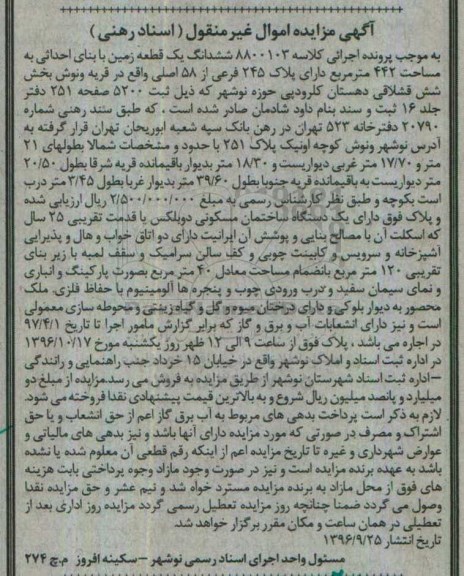 آگهی مزایده اموال غیرمنقول (اسناد رهنی)
به موجب پرونده اجرائی کلاسه ۸۸۰۰۱۰۳ ششدانگ یک قطعه زمین با بنای احداثی به
مساحت ۴۴۲ مترمربع دارای پلاک ۲۴۵ فرعی از ۵۸ اصلی واقع در قریه ونوش بخش
شش قشلاقی دهستان کلرودپی حوزه نوشهر که ذیل ثبت ۵۲۰۰ صفحه ۲۵۱ دفتر
جلد ۱۶ ثبت و سند بنام داود شادمان صادر شده است . که طبق سند رهنی شماره
۲۰۷۹۰ دفترخانه ۵۲۳ تهران در رهن بانک سپه شعبه ابوریحان تهران قرار گرفته به
آدرس نوشهر ونوش کوچه اونیک پلاک ۲۵۱ با حدود و مشخصات شمالا بطولهای ۲۱
متر و ۱۷/۷۰ متر غربی دیواریست و ۱۸/۳۰ متر بدیوار باقیمانده قریه شرقا بطول ۲۰/۵۰
متر دیواریست به باقیمانده قریه جنوبا بطول ۳۹/۶۰ متر بدیوار غربا بطول ۳/۴۵ متر درب
است بکوچه و طبق نظر کارشناس رسمی به مبلغ ۲/۵۰۰/۰۰۰/۰۰۰ ریال ارزیابی شده
و پلاک فوق دارای یک دستگاه ساختمان مسکونی دوبلکس با قدمت تقریبی ۲۵ سال
که اسکلت آن با مصالح بنایی و پوشش آن ایرانیت دارای دو اتاق خواب و هال و پذیرایی
آشپزخانه و سرویس و کابینت چوبی و کف سالن سرامیک و سقف لمبه با زیر بنای
تقریبی ۱۲۰ متر مربع بانضمام مساحت معادل ۴۰ متر مربع بصورت پارکینگ و انباری
و نمای سیمان سفید و درب ورودی چوب و پنجره ها آلومینیوم با حفاظ فلزی. ملک
محصور به دیوار بلوکی و دارای درختان میوه و گل و گیاه زینتی و محوطه سازی معمولی
است و نیز دارای انشعابات آب و برق و گاز که برابر گزارش مامور اجرا تا تاریخ ۹۷/۴/۱
در اجاره می باشد ، پلاک فوق از ساعت ۹ الی ۱۲ ظهر روز یکشنبه مورخ ۱۳۹۶/۱۰/۱۷
در اداره ثبت اسناد و املاک نوشهر واقع در خیابان ۱۵ خرداد جنب راهنمایی و رانندگی
–اداره ثبت اسناد شهرستان نوشهر از طریق مزایده به فروش می رسد.مزایده از مبلغ دو
میلیارد و پانصد میلیون ریال شروع و به بالاترین قیمت پیشنهادی نقدا فروخته می شود.
لازم به ذکر است پرداخت بدهی های مربوط به آب برق گاز اعم از حق انشعاب و یا حق
اشتراک و مصرف در صورتی که مورد مزایده دارای آنها باشد و نیز بدهی های مالیاتی و
عوارض شهرداری و غیره تا تاریخ مزایده اعم از اینکه رقم قطعی آن معلوم شده یا نشده
باشد به عهده برنده مزایده است و نیز در صورت وجود مازاد وجوه پرداختی بابت هزینه
های فوق از محل مازاد به برنده مزایده مسترد خواه شد و نیم عشر و حق مزایده نقدا
وصول می گردد ضمنا چنانچه روز مزایده تعطیل رسمی گردد مزایده روز اداری بعد از
تعطیلی در همان ساعت و مکان مقرر برگزار خواهد شد.
تاریخ انتشار ۱۳۹۶/۹/۲۵
مسئول واحد اجرای اسناد رسمی نوشهر –سکینه افروز م.چ ۲۷۴